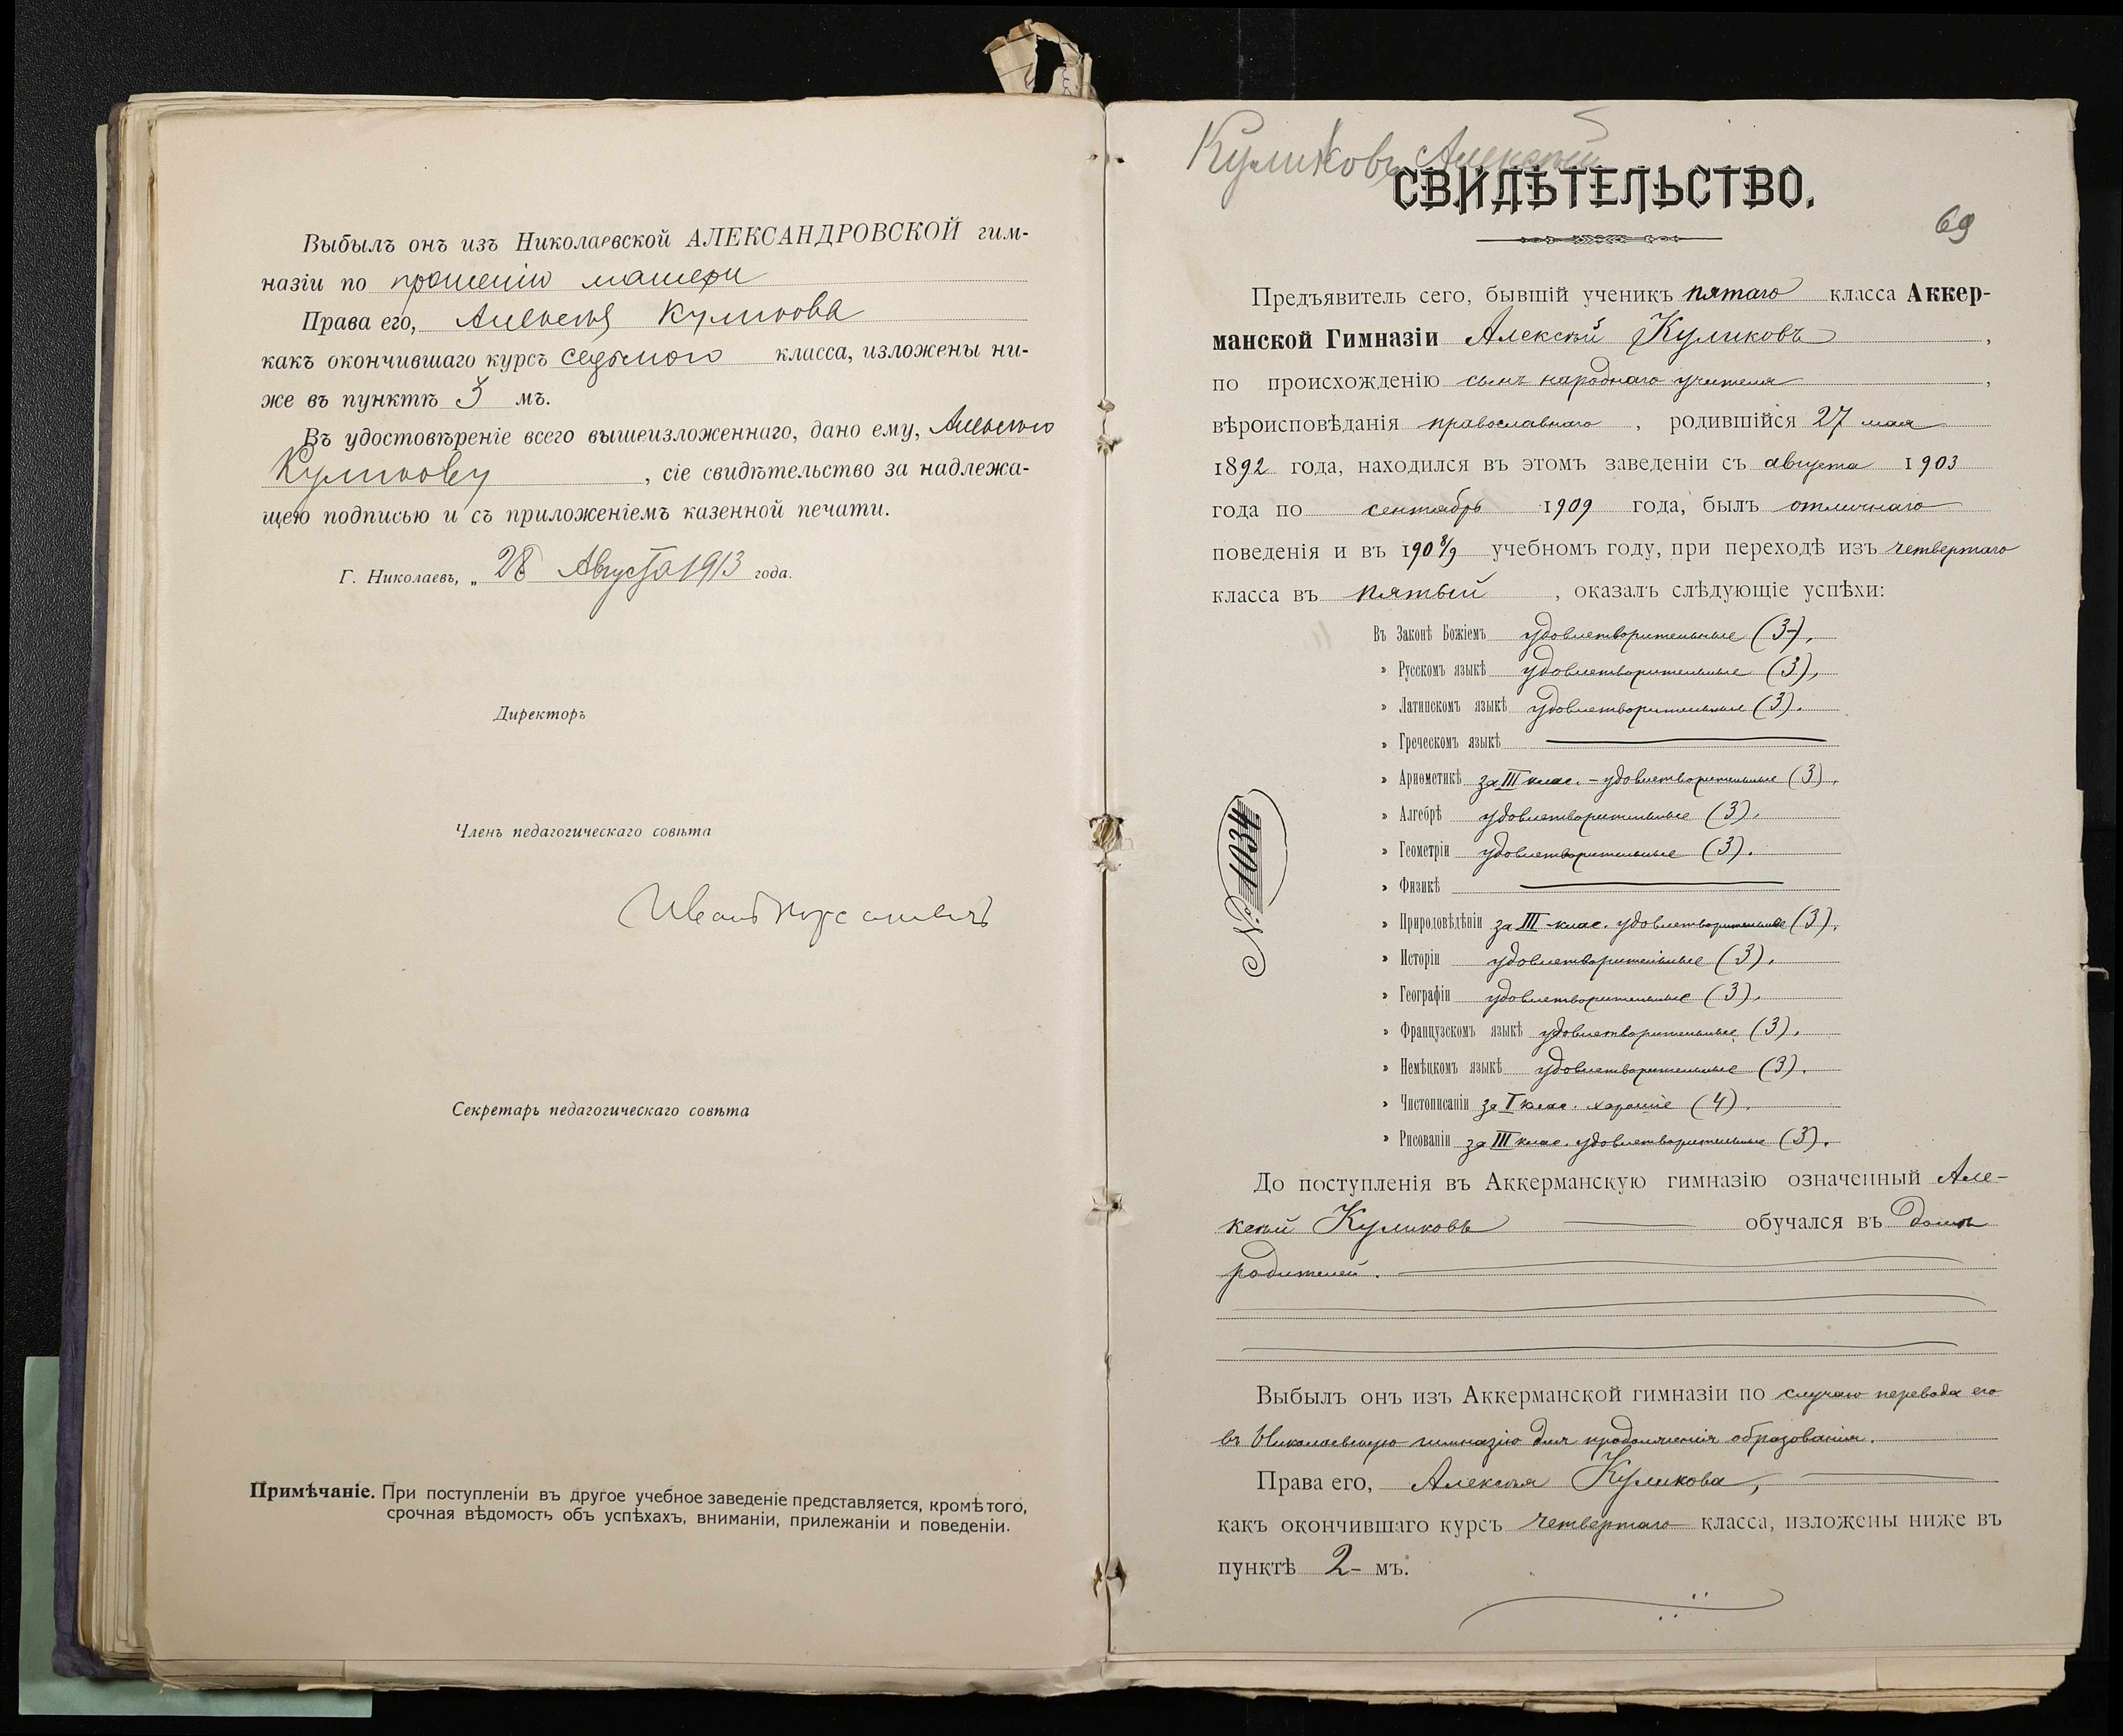 Выбылъ онъ изъ Николаевской АЛЕКСАНДРОВСКОЙ гим-
назіи по прошенію матери
Права его, Алексѣя Куликова
какъ окончившаго курсъ седьмого класса, изложены ни-
же въ пунктѣ 3 мъ.
Въ удостовѣреніе всего вышеизложеннаго, дано ему, Алексѣю
Куликову, сіе свидѣтельство за надлежа-
щею подписью и съ приложеніемъ казенной печати.
Г. Николаевъ, „ 28 Августа 1913 года.
Директоръ
Членъ педагогическаго совѣта
Секретарь педагогическаго совѣта
Примѣчаніе. При поступленіи въ другое учебное заведеніе представляется, кромѣ того,
срочная вѣдомость объ успѣхахъ, вниманіи, прилежаніи и поведеніи.
Куликовъ Алексѣй
СВИДѢТЕЛЬСТВО.
69
Предъявитель сего, бывшій ученикъ пятаго класса Аккер-
манской Гимназіи Алексѣй Куликовъ,
по происхожденію сынъ народнаго учителя,
вѣроисповѣданія православнаго, родившійся 27 мая
1892 года, находился въ этомъ заведеніи съ августа 1903
года по сентябрь 1909 года, былъ отличнаго
поведенія и въ 1908/9 учебномъ году, при переходѣ изъ четвертаго
класса въ пятый, оказалъ слѣдующіе успѣхи:
Въ Законѣ Божіемъ удовлетворительные (3),
» Русскомъ языкѣ удовлетворительные (3),
» Латинскомъ языкѣ удовлетворительные (3).
» Греческомъ языкѣ
» Ариѳметикѣ за III клас. - удовлетворительные (3).
» Алгебрѣ удовлетворительные (3).
» Геометріи удовлетворительные (3).
» Физикѣ
» Природовѣдѣніи за III клас. удовлетворительные (3).
» Исторіи удовлетворительные (3).
» Географіи удовлетворительные (3).
» Французскомъ языкѣ удовлетворительные (3).
» Нѣмецкомъ языкѣ удовлетворительные (3).
» Чистописаніи за I клас. хорошіе (4).
» Рисованіи за III клас. удовлетворительные (3).
№ 1034
До поступленія въ Аккерманскую гимназію означенный Але-
ксѣй Куликовъ обучался въ домѣ
родителей.
Выбылъ онъ изъ Аккерманской гимназіи по случаю перевода его
въ Николаевскую гимназію для продолженія образованія.
Права его, Алексѣя Куликова,
какъ окончившаго курсъ четвертаго класса, изложены ниже въ
пунктѣ 2- мъ.